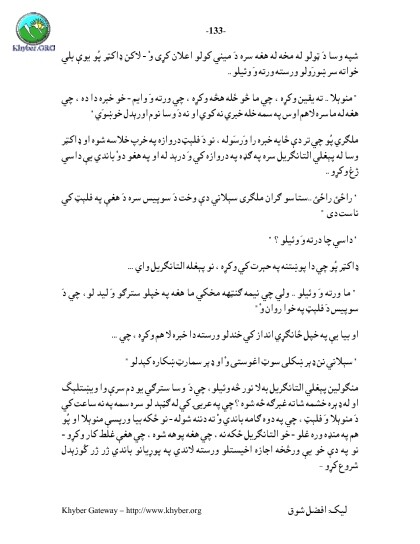 Khyber.ORG
-133-
شپه وسا دَ ټولو له مخه له هغه سره دَ مينې کولو اعلان کړی وُ - لاکن ډاکټر پُو يوې بلې
خواته سر ښورَولو ورسته ورته وَ وئيلو ..
"منوېلا .. ته يقين وکړه ، چې ما خو څله هڅه وکړه ، چې ورته وَ وايم - خو خبره دا ده ، چې
هغه له ما سره لا هم اوس په سمه خله خبرې نه کوي او نه دَ وسا نوم اورېدل خوښوَي"
ملګري پُو چې تر دې ځايه خبره را ورَسَوله ، نو دَ فلېټ دروازه په خرپ خلاسه شوه او ډاکټر
وسا له پېغلې التانګريل سره يه ګډه په دروازه کې وَ درېد له او په هغو دوْ باندې يې داسې
ږغ وکړو ..
"راځئ راځئ .. ستاسو ګران ملګری سېلاني دې وخت دَ سوپيس سره دَ هغې په فلېټ کې
ناست دی"
"داسې چا درته وَ وئيلو ؟"
ډاکټر پُو چې دا پوښتنه په حيرت کې وکړه ، نو پېغله التانګريل واي ...
"ما ورته وَ وئيلو .. ولې چې نيمه ګنټهه مخکې ما هغه په خپلو سترګو وَ ليد لو ، چې دَ
سوپيس دَ فلېټ په خوا روان وُ"
او بيا يې په خپل ځانګړي انداز کې خندلو ورسته دا خبره لا هم وکړه ، چې ...
"سېلاني نن ډېر ښکلی سوټ اغوستی وُ او ډېر سمارټ ښکاره کېدلو"
منګولين پېغلې التانګريل به لا نور څه وئيلو ، چې دَ وسا سترګې يو دم سرې وا وېښتلېګ
او له ډېره خشمه شاته غبرګه څه شوه ؟ چې په عربۍ کې له ګڼېد لو سره سمه په نه ساعت کې
دَ منوېلا دَ فلېټ ، چې په دوه ګامه باندې وُ ته دننه شوله - نو ځکه بيا ورپسې منوېلا او پُو
هم په منډه وره غلو - خو التانګريل ځکه نه ، چې هغه پوهه شوه ، چې هغې غلط کار وکړو -
نو په دې خو يې ورڅخه اجازه اخيستلو ورسته لاندې په پوړيانو باندې ژر ژر کُوزېدل
شروع کړو -
Khyber Gateway – http://www.khyber.org
ليک: افضل شوق